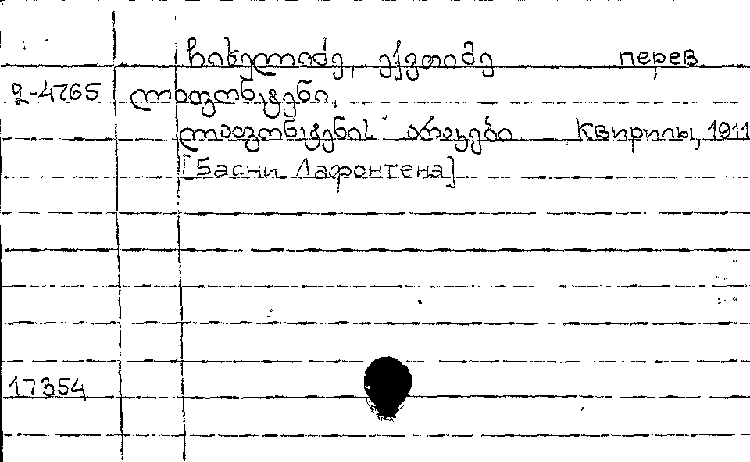 ჩიხელიძე, ექვთიმე перев.
2-4765 ლაფონტენი,
ლაფონტენის არაკები Квирилы, 1911
[Басни Лафонтена]
17354